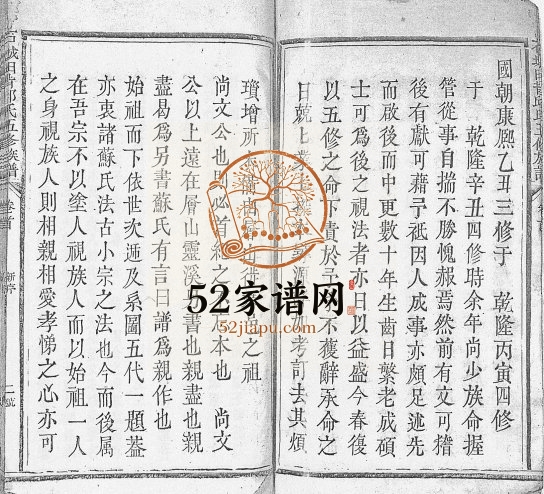 國朝康熙乙丑三修于　乾隆丙寅四修
于　乾隆辛丑四修時余年尚少族命握
管從事自揣不勝愧赧焉然前有文可稽
後有獻可藉予祇因人成事亦頗足述先
而啟後而中更數十年生齒日繁老成碩
士可為後之視法者亦日以益盛今春復
以五修之命下責於予予不獲辭承命之
日兢上業上
考訂去其煩
瓊增所
之祖
尚文公也
必首紀之
本也　尚文
公以上遠在厝山靈溪
書也親盡也親
盡曷為另書蘇氏有言曰譜為親作也
始祖而下依世次遞及系圖五代一題葢
亦衷諸蘇氏法古小宗之法也今而後属
在吾宗不以塗人視族人而以始祖一人
之身視族人則相親相愛孝悌之心亦可
石城田背邱氏五修族譜
卷首
新序
二號
52家谱网
52jiapu.com